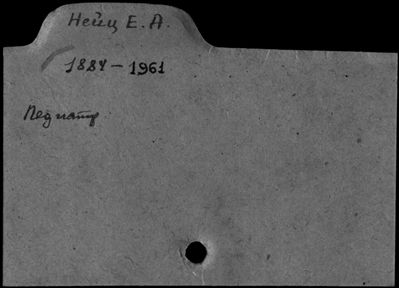 Нейц Е. А.
1887 – 1961
Педиатр